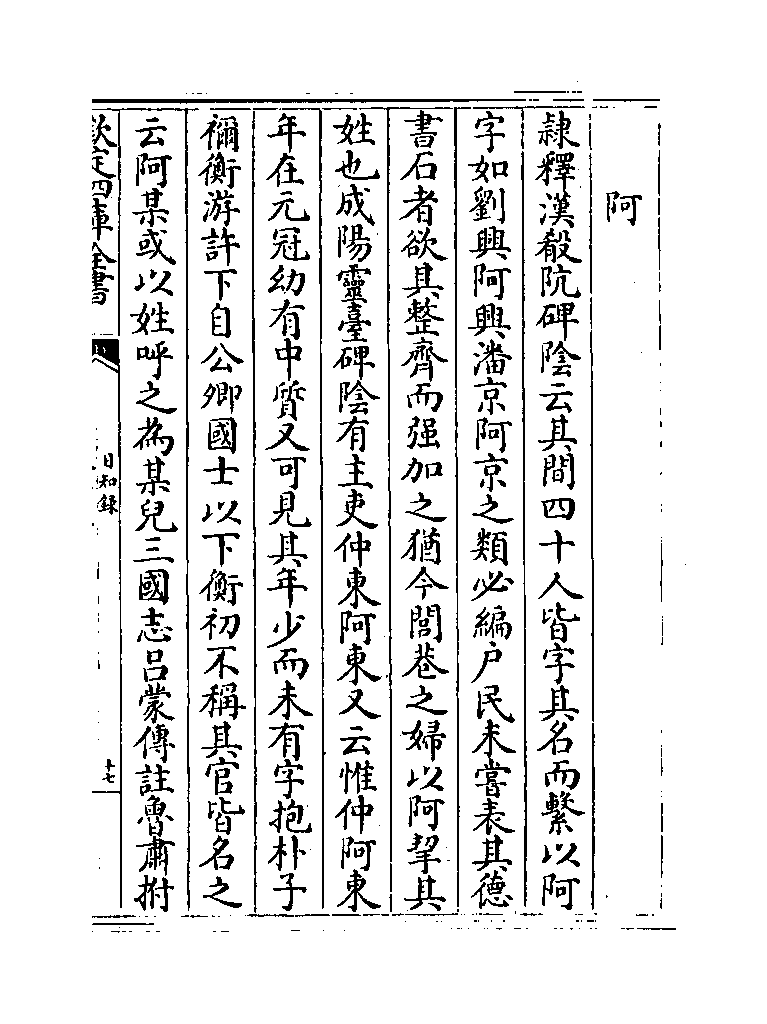 阿
隷釋漢殽阬碑陰云其間四十人皆字其名而繫以阿
字如劉興阿興潘京阿京之類必編户民未嘗表其德
書石者欲其整齊而强加之猶今閭巷之婦以阿挈其
姓也成陽靈臺碑陰有主吏仲東阿東又云惟仲阿東
年在元冠幼有中質又可見其年少而未有字抱朴子
禰衡游許下自公卿國士以下衡初不稱其官皆名之
云阿某或以姓呼之為某兒三國志吕蒙傳註魯肅拊
欽定四庫全書
日知錄
十七